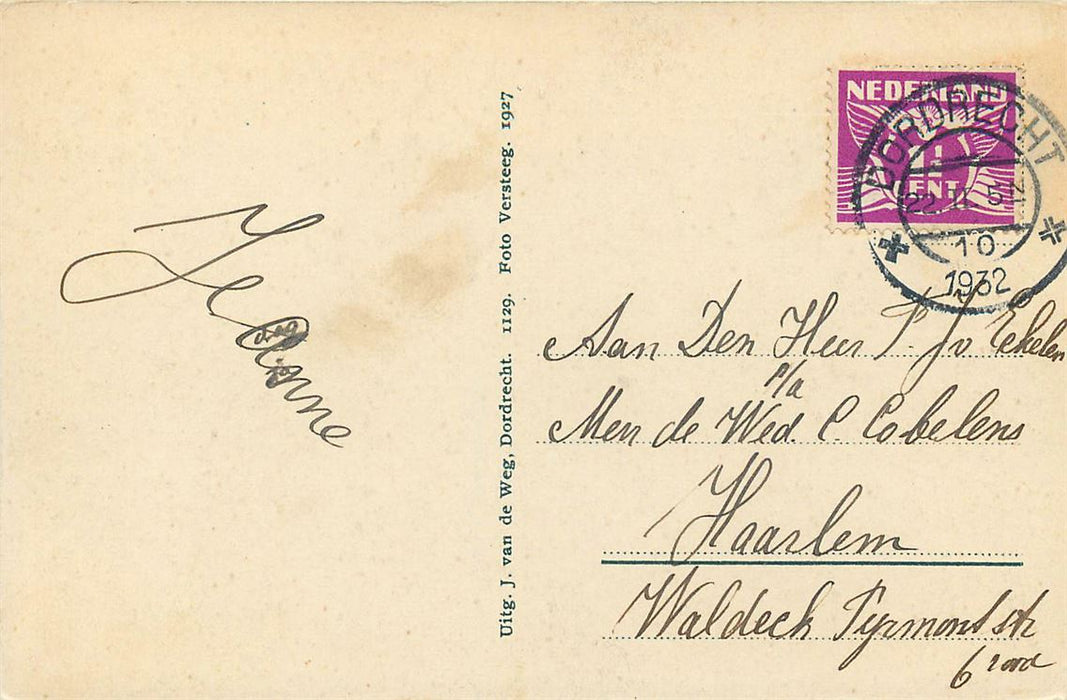 Jeanne
Uitg. J. van de Weg, Dordrecht. 1129. Foto Versteeg. 1927
NEDERLAND
CENT
DORDRECHT
10
1932
Aan Den Heer P. Jv Ekelen
p/a
Mej de Wed. C. Cobelens
Haarlem
Waldeck Pyrmont str
6 rood